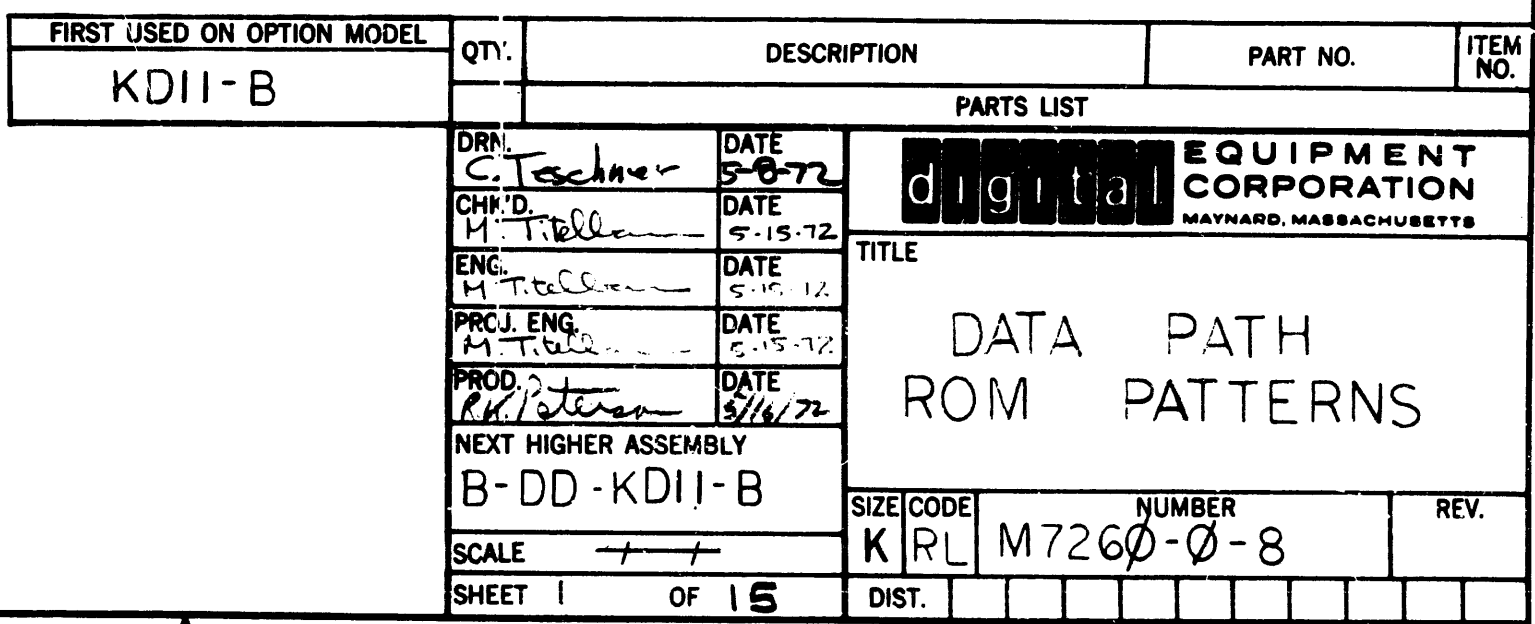 FIRST USED ON OPTION MODEL
KD11-B
QTY. DESCRIPTION PART NO. ITEM NO.
PARTS LIST
DRN. C. Teschner DATE 5-8-72
CHK'D. M. DATE 5-15-72
ENG. M DATE
PROJ. ENG. M. DATE 5-15-72
PROD. R.K. Peterson DATE 5/16/72
NEXT HIGHER ASSEMBLY
B-DD-KD11-B
SCALE
SHEET 1 OF 15
digital EQUIPMENT
CORPORATION
MAYNARD, MASSACHUSETTS
TITLE
DATA PATH
ROM PATTERNS
SIZE CODE NUMBER REV.
K RL M726Ø-Ø-8
DIST.